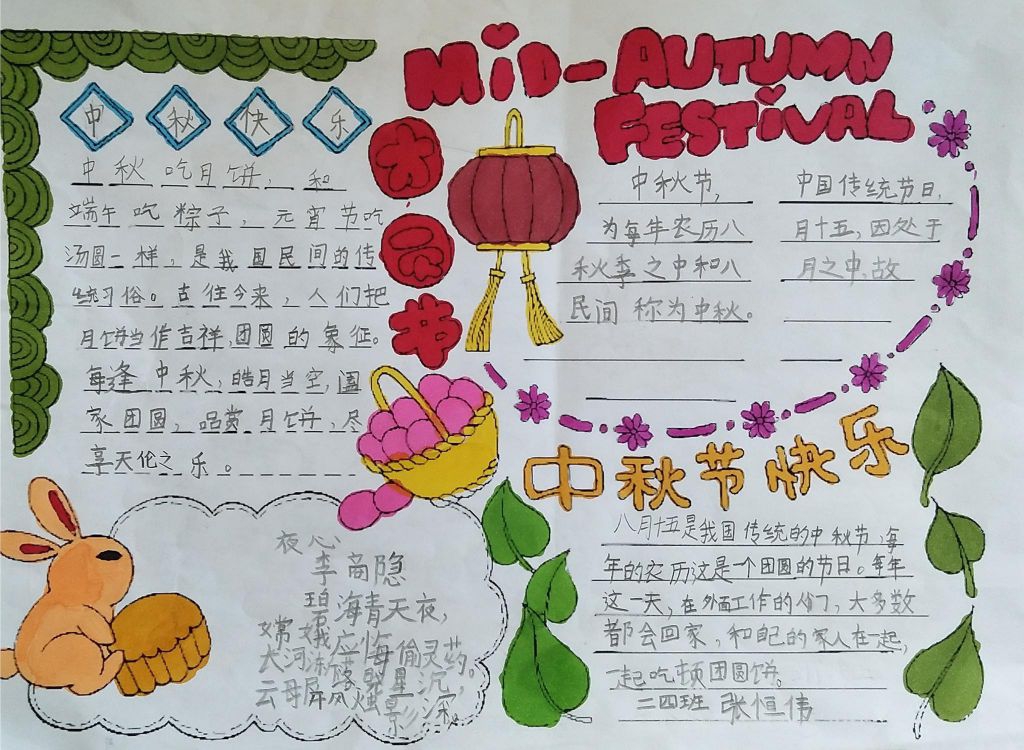 MiD-AUTUMN
FESTiVAL
中秋快乐
中秋吃月饼，和
端午吃粽子，元宵节吃
汤圆一样，是我国民间的传
统习俗。古往今来，人们把
月饼当作吉祥，团圆的象征。
每逢中秋，皓月当空，阖
家团圆，品尝月饼，尽
享天伦之乐。
中秋节， 中国传统节日，
为每年农历八 月十五，因处于
秋季之中和八 月之中，故
民间称为中秋。
中秋节快乐
八月十五是我国传统的中秋节，每
年的农历这是一个团圆的节日。每年
这一天，在外面工作的人们，大多数
都会回家，和自己的家人在一起，
一起吃顿团圆饼。
二四班 张恒伟
夜心
李商隐
碧海青天夜，
嫦娥应悔偷灵药。
大河冻落晓星沉，
云母屏风烛影深。